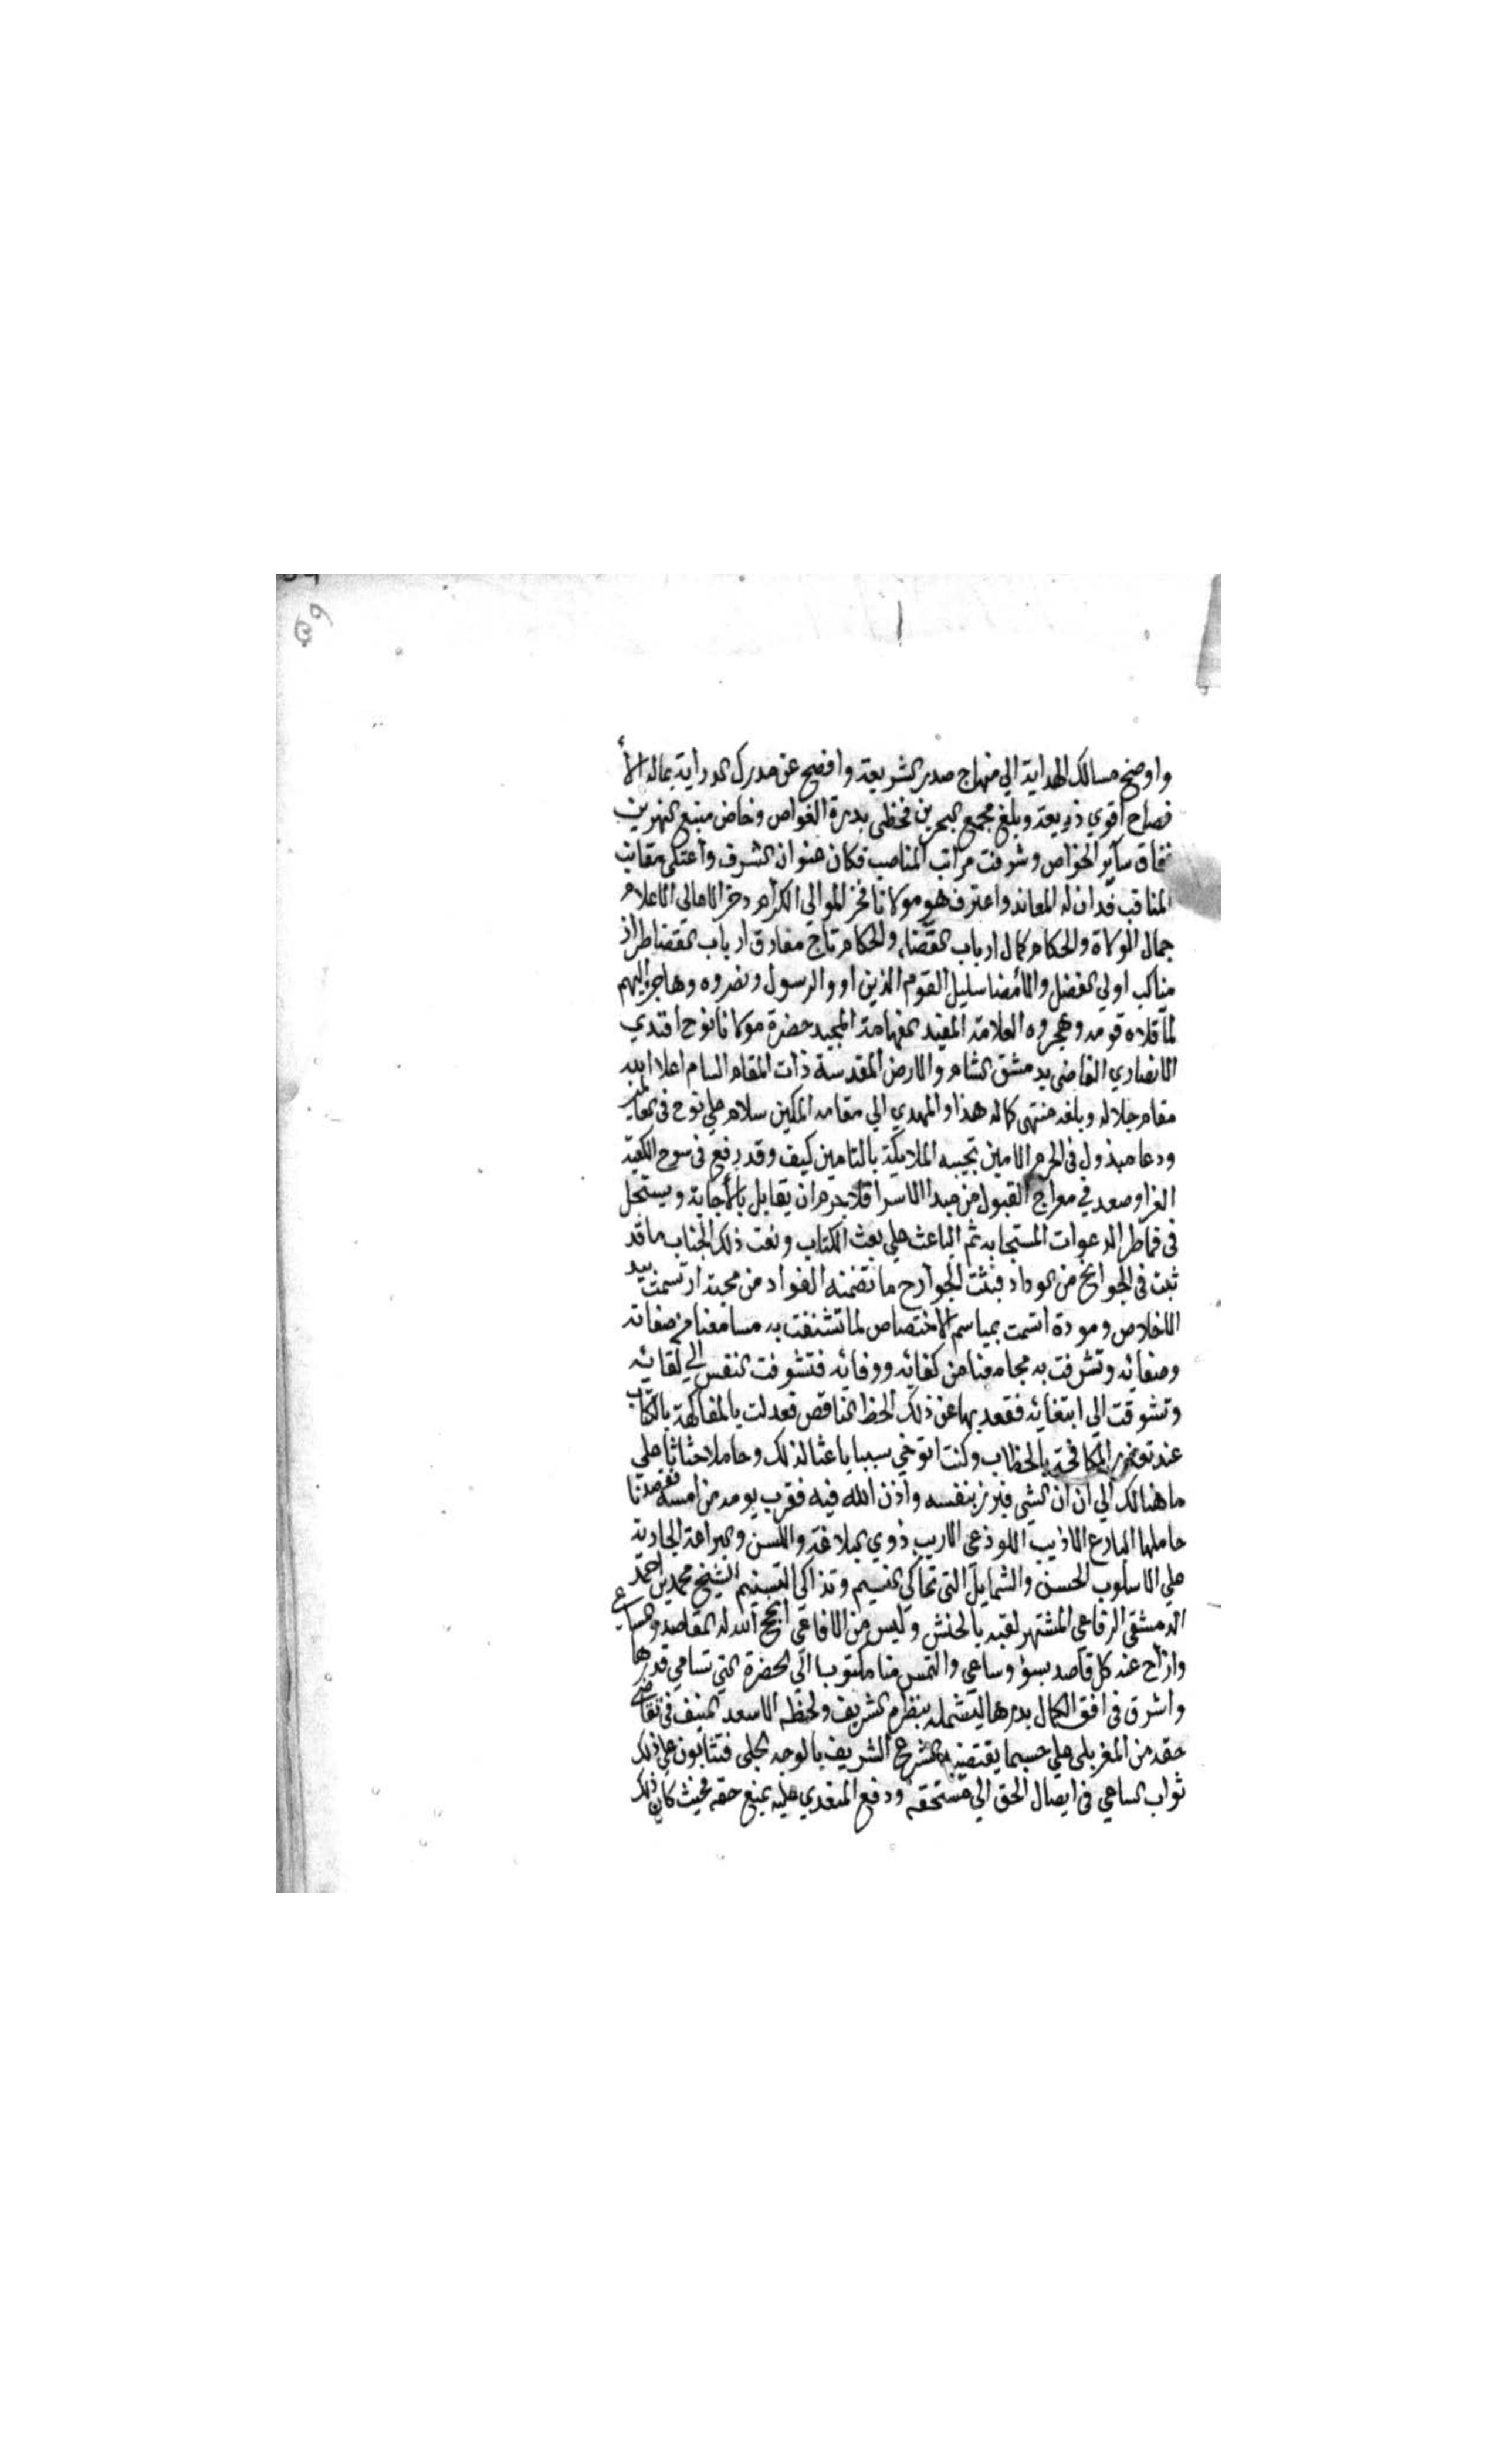 واوضح مسالك الهداية الي منهاج صدر الشريعة وافصح عن مدرك الدراية بماله الأ
فصاح اقوي ذريعة وبلغ مجمع البحرين فحظى بدرة الغواص وخاض منبع النهرين
ففاق سآير الخواص وشرفت مراتب المناصب فكان عنوان الشرف واعتلى مقانب
المناقب فدان له المعاند واعترف هو مولانا فخر الموالي الكرام ذخر الاهالي الاعلام
جمال الولاة والحكام كمال ارباب القضا والحكام تاج مفارق ارباب القضا طراز
مناكب اولي الفضل والأمضا سليل القوم الذين اووا الرسول ونصروه وهاجر اليهم
لمّا قلاه قومه وهجروه العلامة المفيد الفهامة المجيد حضرة مولانا نوح افندي
الانصاري القاضي بدمشق الشام والارض المقدسة ذات المقام السام اعلا الله
مقام جلاله وبلغه منتهى كماله هذا والمهدي الي مقامه المكين سلام علي نوح في العالمين
ودعا مبذول في الحرم الامين تجيبه الملايكة بالتامين كيف وقد رفع في سوح الكعبة
الغرا وصعد في معراج القبول من مبدا الاسرا فلا جرم ان يقابل بالأجابة ويستحل
في قماطر الدعوات المستجابه ثم الباعث علي بعث الكتاب ونعت ذلك الجناب ما قد
ثبت في الجوانح من الوداد فبثت الجوارح ما تضمنه الفواد من محبة ارتسمت بيد
الاخلاص ومودة اتسمت بمياسم الاختصاص لما تشنفت به مسامعنا من صفاته
وصفائه وتشرفت به مجامعنا من كفائه ووفائه فتشوفت النفس الي لقائه
وتشوقت الي ابتغائه فقعد بها عن ذلك الحظ الناقص فعدلت بالمفاكهة بالكتاب
عند تعذر المكافحة بالخطاب وكنت اتوخي سببا باعثا لذلك وحاملا حثاثا علي
ما هنالك الي ان ان الشي فبرز بنفسه واذن الله فيه فقرب يومه من امسه فقصدنا
حاملها البارع الاديب اللوذعي الاريب ذوي البلاغة واللسن والبراعة الجارية
علي الاسلوب الحسن والشمايل التي تحاكي النسيم وتذاكي التسنيم الشيخ محمد بن احمد
الدمشقي الرفاعي المشتهر لقبه بالحنش وليس من الافاعي انجح الله له المقاصد والمساعي
وازاح عنه كل قاصد بسوء وساعي والتمس منا مكتوبا الي الحضرة التي تسامي قدرها
واشرق في افق الكمال بدرها ليشمله بنظره الشريف ولحظه الاسعد المنيف في تقاضي
حقه من المغربلي علي حسبما يقتضيه الشرع الشريف بالوجه الجلي فتثابون علي ذلك
ثواب الساعي في ايصال الحق الي مستحقه ودفع المتعدي عليه بمنع حقه فحيث كان ذلك